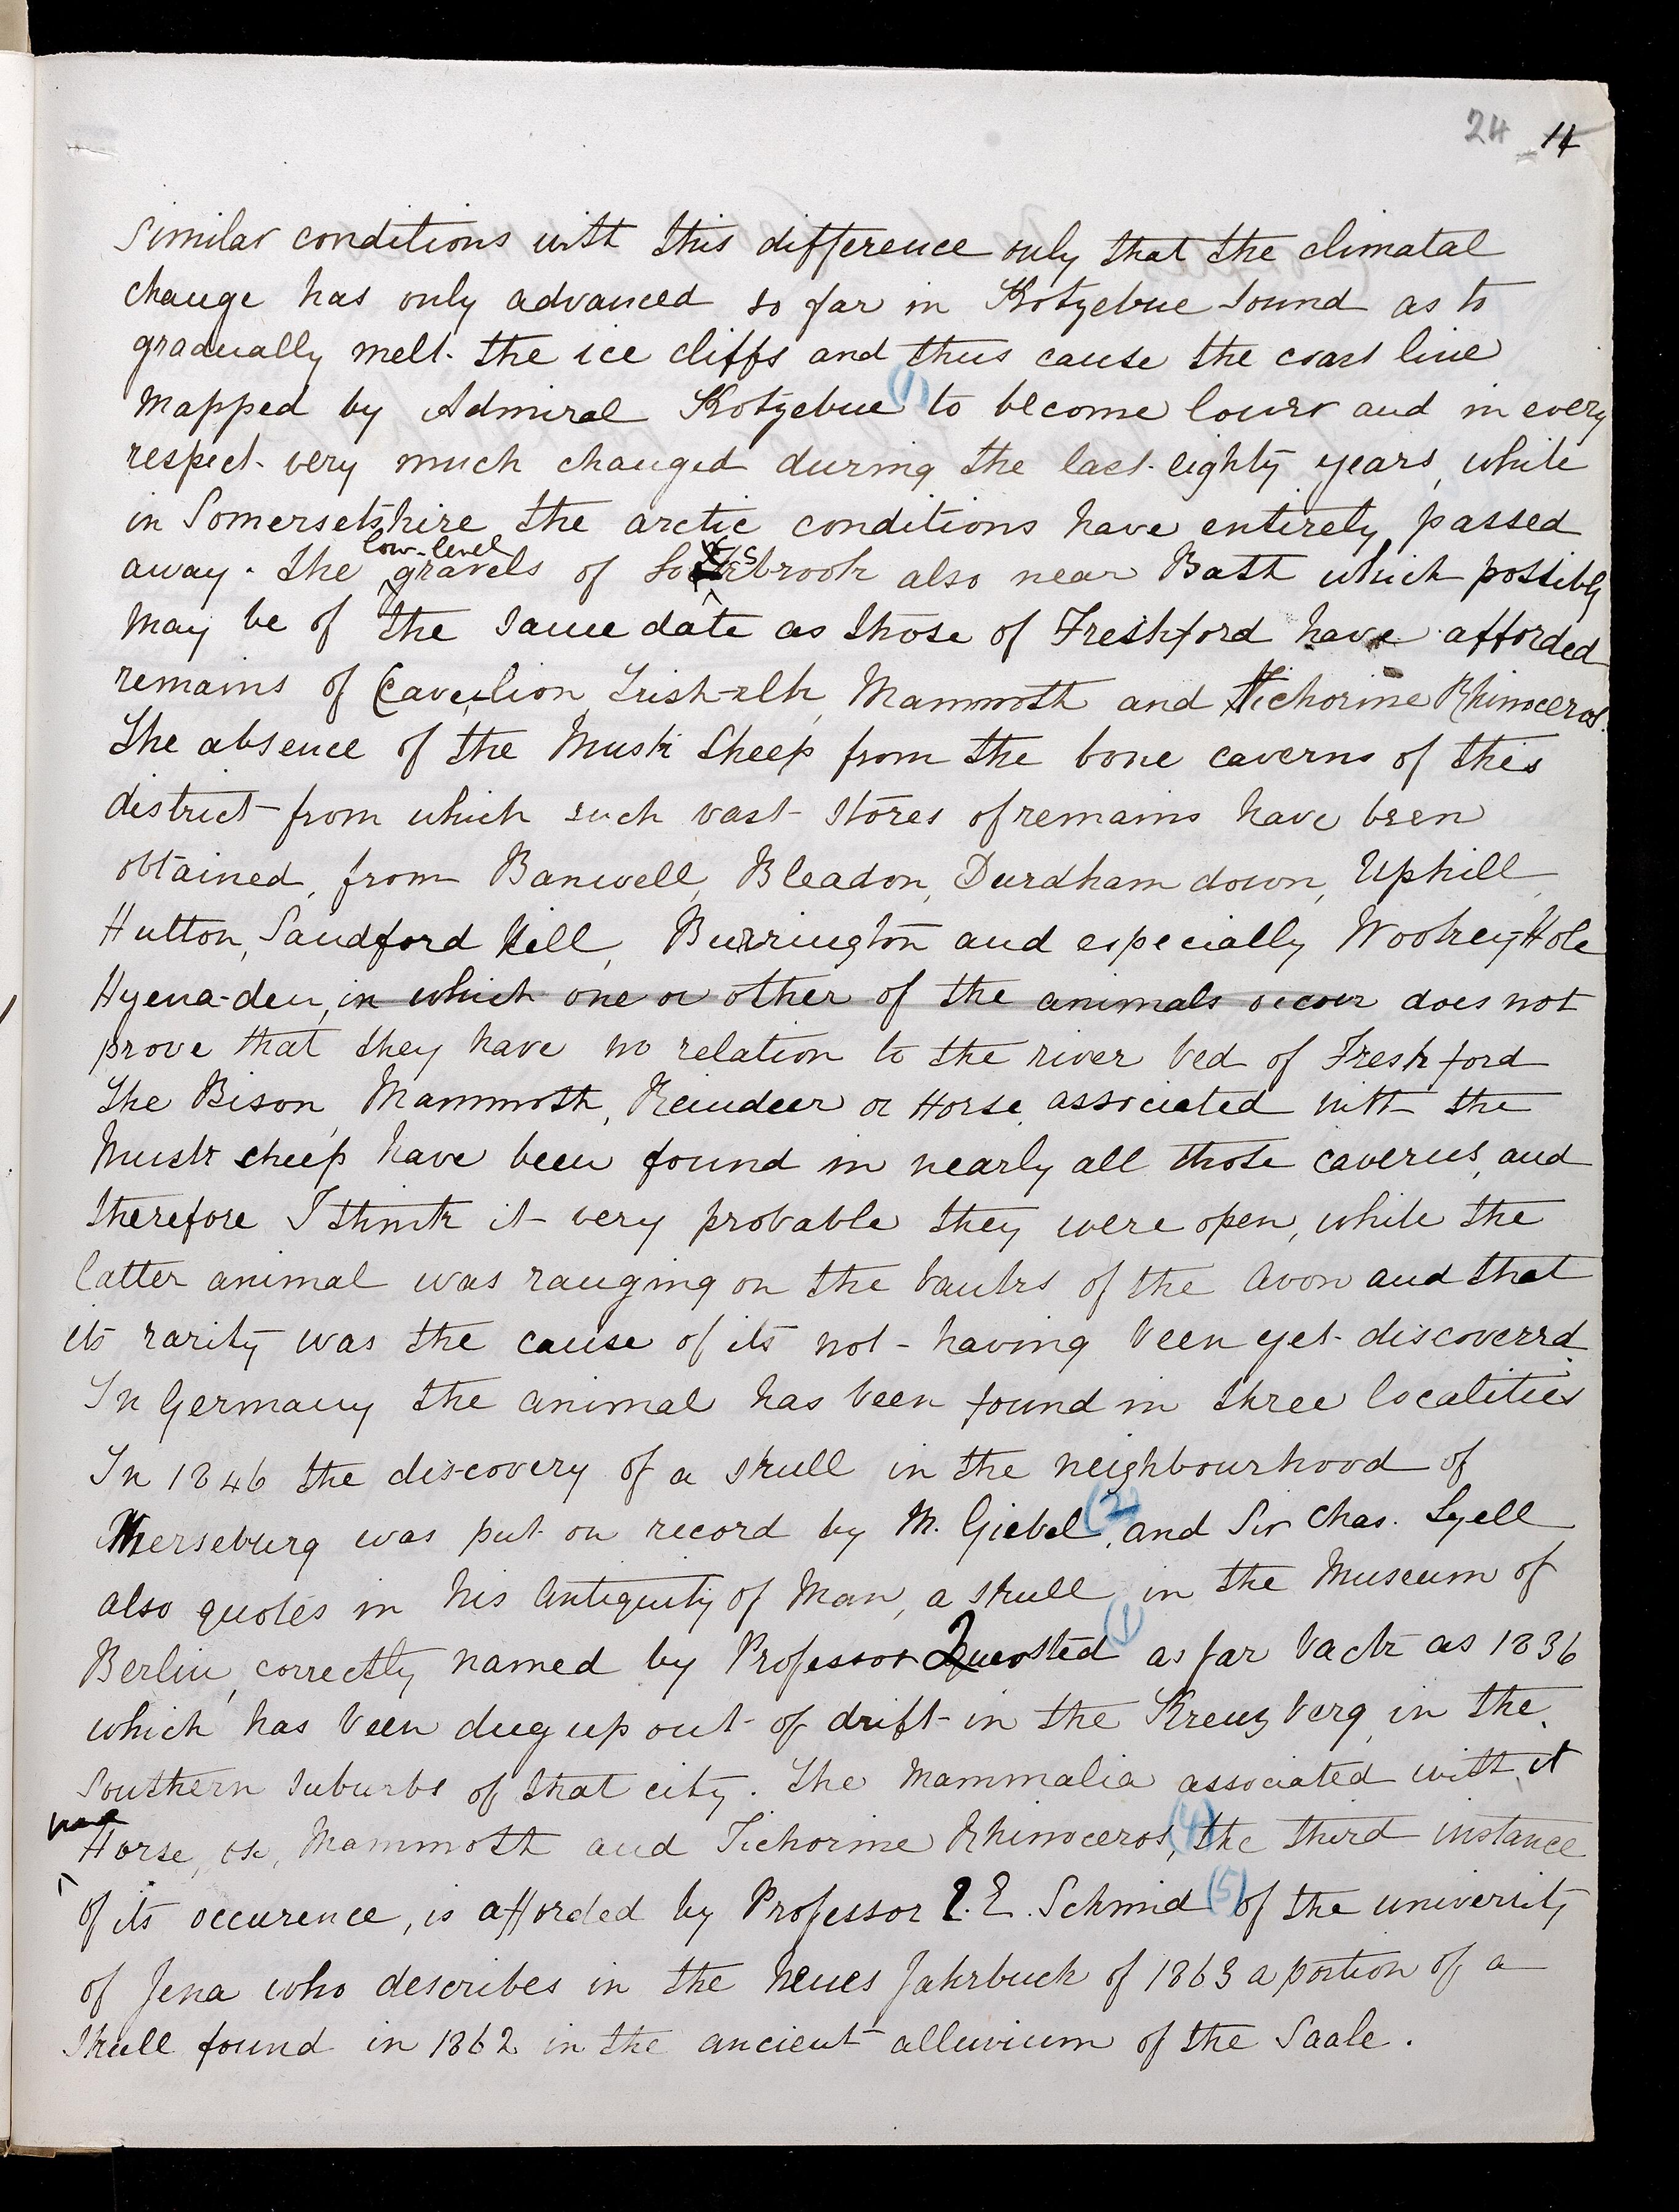 24 14
Similar conditions with this difference only that the climatal
change has only advanced so far in Kotzebue Sound as to
gradually melt the ice cliffs and thus cause the coast line
mapped by Admiral Kotzebue (1) to become lower and in every
respect very much changed during the last eighty years, while
in Somersetshire the arctic conditions have entirely passed
low-level
away. The gravels of Locksbrook also near Bath which possibly
may be of the same date as those of Freshford have afforded
remains of Cave-lion, Irish-elk, Mammoth and Tichorine Rhinoceros.
The absence of the Musk Sheep from the bone caverns of this
district from which such vast stores of remains have been
obtained, from Banwell, Bleadon, Durdham down, Uphill,
Hutton, Sandford Hill, Burrington and especially Wookey-Hole
Hyena-den, in which one or other of the animals occur does not
prove that they have no relation to the river bed of Freshford
The Bison, Mammoth, Reindeer or Horse, associated with the
Musk sheep have been found in nearly all those caverns, and
therefore I think it very probable they were open, while the
latter animal was ranging on the banks of the Avon and that
its rarity was the cause of its not-having been yet discoverrd.
In Germany the animal has been found in three localities
In 1846 the discovery of a skull in the neighbourhood of
Merseburg was put on record by M. Giebel (2), and Sir Chas. Lyell
also quotes in his Antiquity of Man, a skull in the Museum of
Berlin, correctly named by Professor Quensted (1) as far back as 1836
which has been dug up out of drift in the Kreuzberg in the
Southern suburbs of that city. The Mammalia associated with it
was
Horse, ox, Mammoth and Tichorine Rhinoceros, (4) the third instance
of its occurence, is afforded by Professor E. E. Schmid (5) of the university
of Jena who describes in the Neues Jahrbuch of 1863 a portion of a
Skull found in 1862 in the ancient alluvium of the Saale.